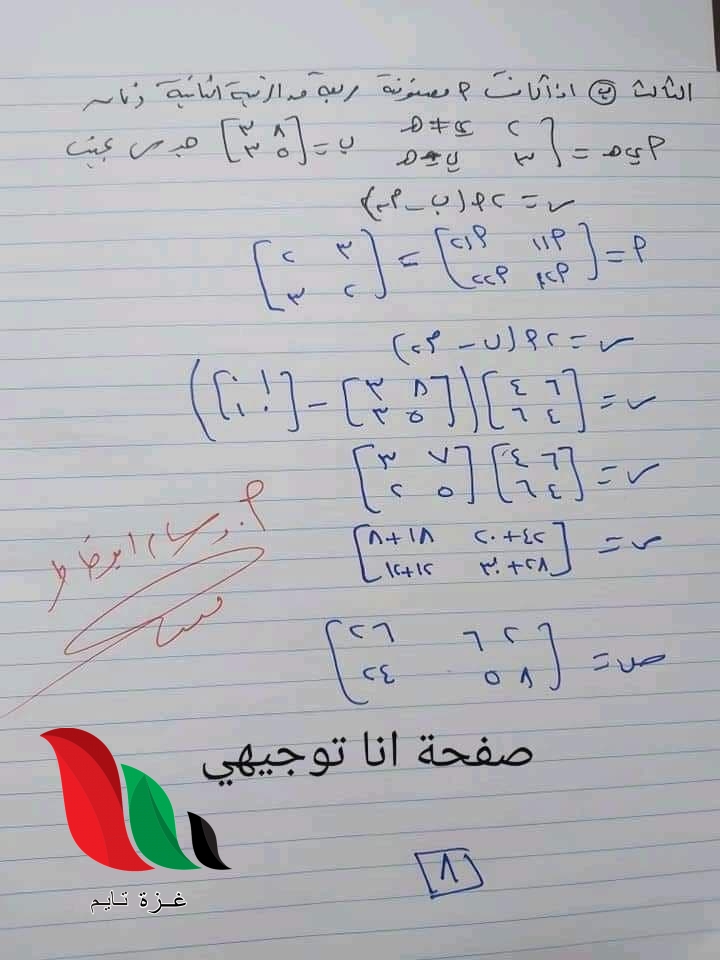 الثالث ب) اذا كانت م مصفوفة مربعة من الرتبة الثانية وكان
م ي هـ = [ ٢ ي ≠ هـ
٣ ي = هـ ب = [ ٨ ٣
٥ ٣ ]
س = ٢م (ب - م٢)
م = [ م١١ م١٢
م٢١ م٢٢ ] = [ ٣ ٢
٢ ٣ ]
س = ٢م (ب - م٢)
س = [ ٦ ٤
٤ ٦ ] ( [ ٨ ٣
٥ ٣ ] - [ ١ ٠
٠ ١ ] )
س = [ ٦ ٤
٤ ٦ ] [ ٧ ٣
٥ ٢ ]
س = [ ٤٢+٢٠ ١٨+٨
٢٨+٣٠ ١٢+١٢ ]
س = [ ٦٢ ٢٦
٥٨ ٢٤ ]
صفحة انا توجيهي
غزة تايم
٨